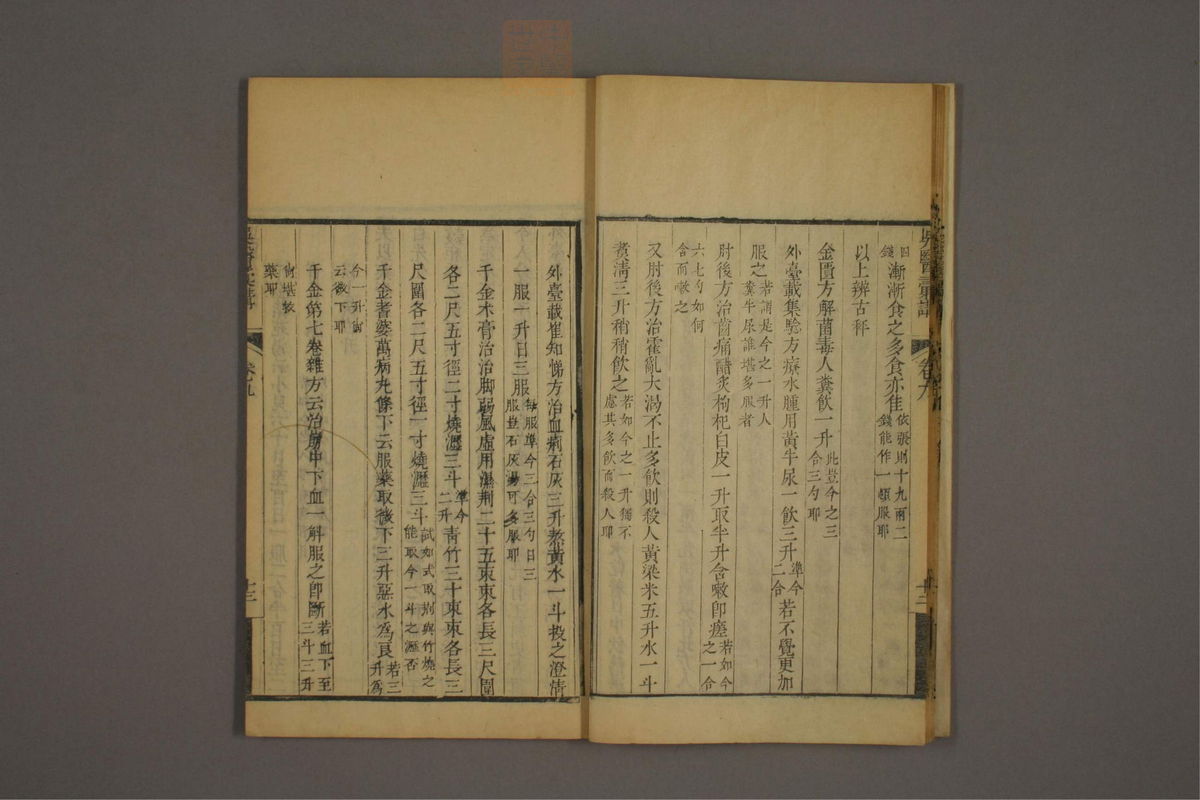 四錢漸漸食之多食亦佳依張則十九兩二錢能作一頓服耶
以上辨古秤
金匱方解菌毒人糞飲一升此豈今之三合三勺耶
外臺載集驗方療水腫用黃牛尿一飲三升準今二合若不覺更加
服之若謂是今之一升人糞牛尿誰堪多服者
肘後方治齒痛醋炙枸杞白皮一升取半升含嗽卽瘥若如今之一合
六七勺如何含而嗽之
又肘後方治霍亂大渴不止多飲則殺人黃梁米五升水一斗
煮淸三升稍稍飲之若如今之一升猶不慮其多飲而殺人耶
吳醫彙講
卷九
十二
外臺載崔知悌方治血痢石灰三升熬黃水一斗投之澄淸
一服一升日三服每服準今三合三勺日三服豈石灰湯可多服耶
千金术膏治治脚弱風虛用濕荊二十五束束各長三尺圍
各二尺五寸徑二寸燒瀝三斗準今二升靑竹三十束束各長三
尺圍各二尺五寸徑一寸燒瀝三斗試如式取荊與竹燒之能取今一斗之瀝否
千金耆婆萬病丸條下云服藥取微下三升惡水爲良若三升爲
今一升當云微下耶
千金第七卷雜方云治崩中下血一斛服之卽斷若血下至三斗三升
尙堪救藥耶
吳醫彙講
卷九
十三